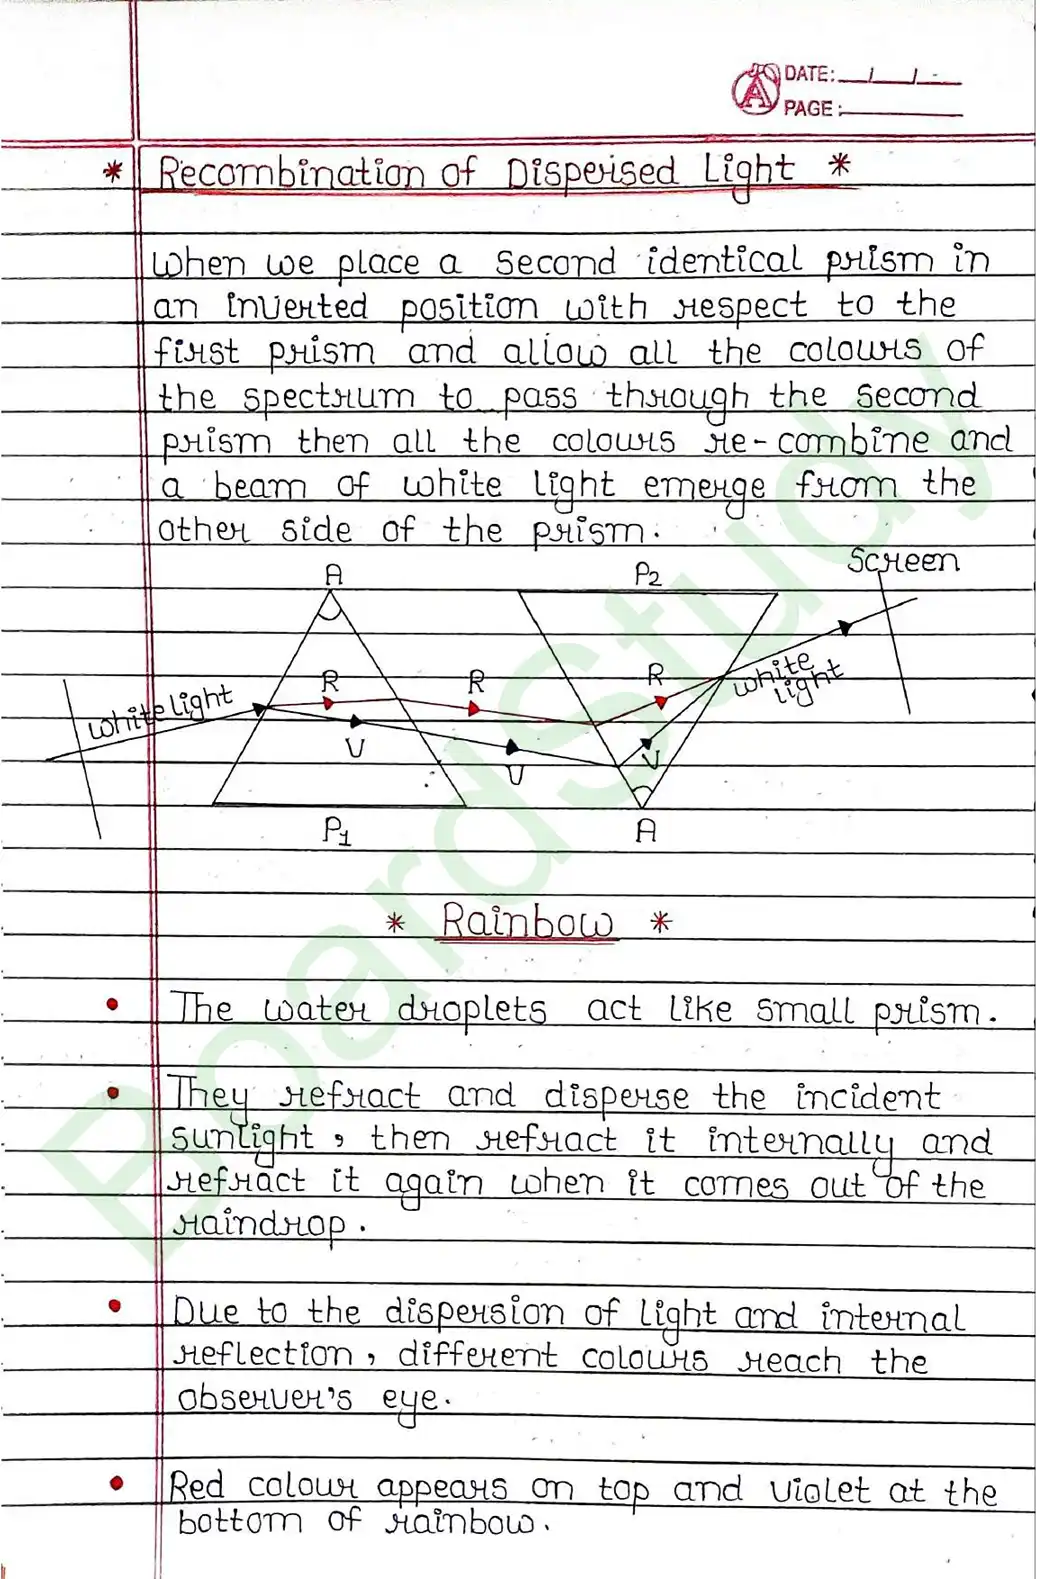 DATE: / /
PAGE:
* Recombination of Dispersed Light *
When we place a second identical prism in
an inverted position with respect to the
first prism and allow all the colours of
the spectrum to pass through the second
prism then all the colours re-combine and
a beam of white light emerge from the
other side of the prism.
A P2 Screen
White light R R R White
light
V V V
P1 A
* Rainbow *
• The water droplets act like small prism.
• They refract and disperse the incident
sunlight, then refract it internally and
refract it again when it comes out of the
raindrop.
• Due to the dispersion of light and internal
reflection, different colours reach the
observer's eye.
• Red colour appears on top and violet at the
bottom of rainbow.
BoardStudy